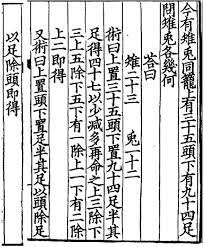 今有雉兔同籠上有三十五頭下有九十四足
問雉兔各幾何
荅曰
雉二十三 兔一十二
術曰上置三十五頭下置九十四足半其
足得四十七以少減多再命之上三除下
三上五除下五下有一除上一下有二除
上二即得
又術曰上置頭下置足半其足以頭除足
以足除頭即得